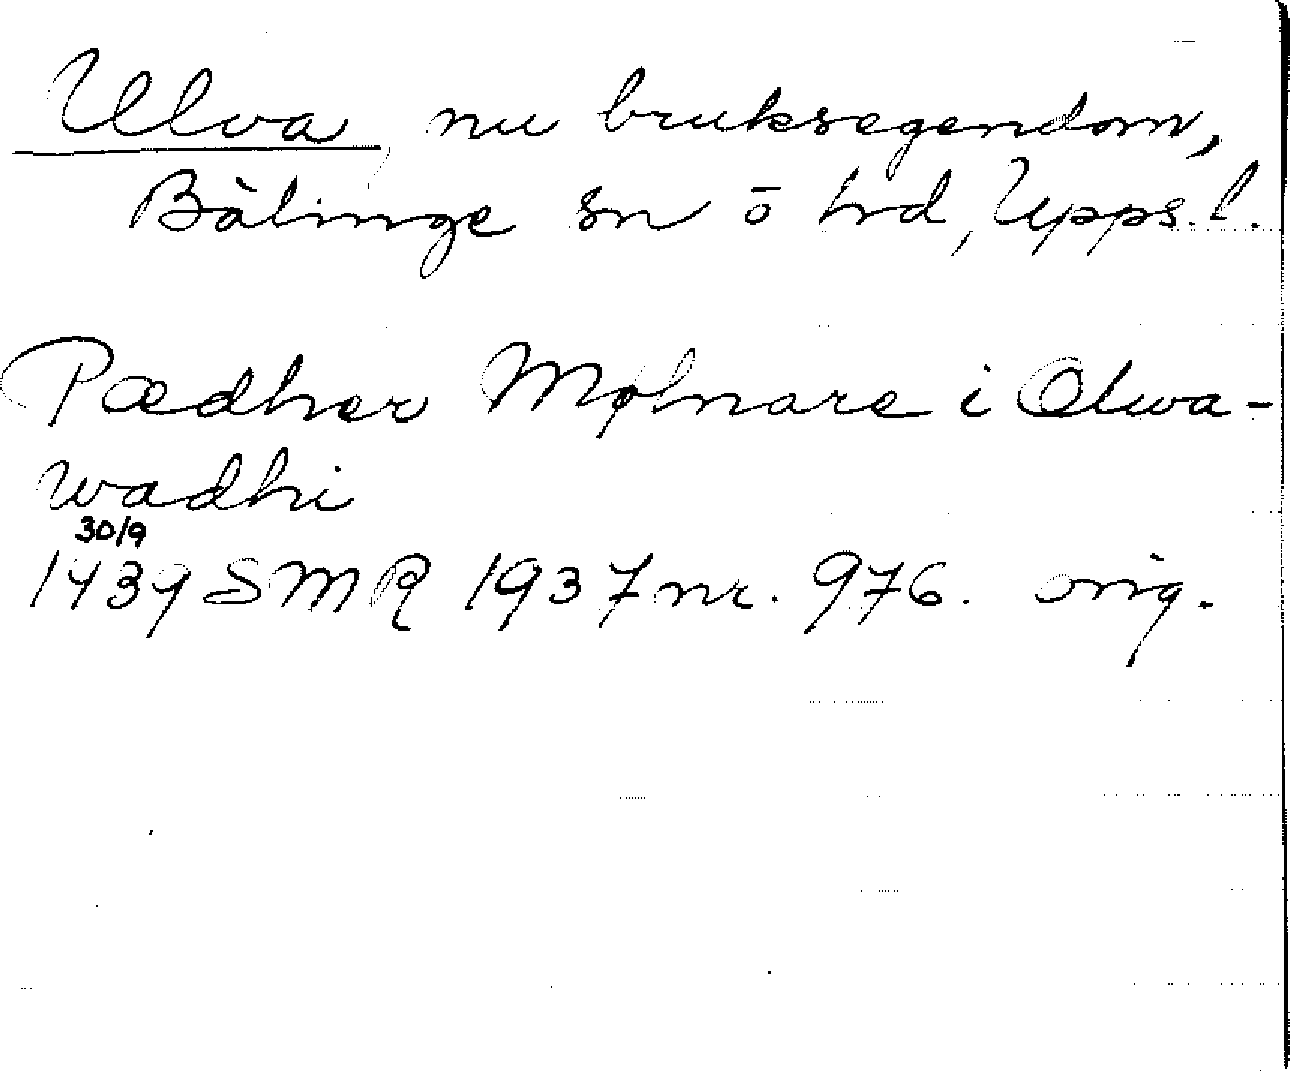 Ulva, nu bruksegendom,
Bälinge sn ō hd, Upps. l.
Pædher Mølnare i Olwa-
wadhi
30/9
1439 SMR 1937 nr. 976. orig.